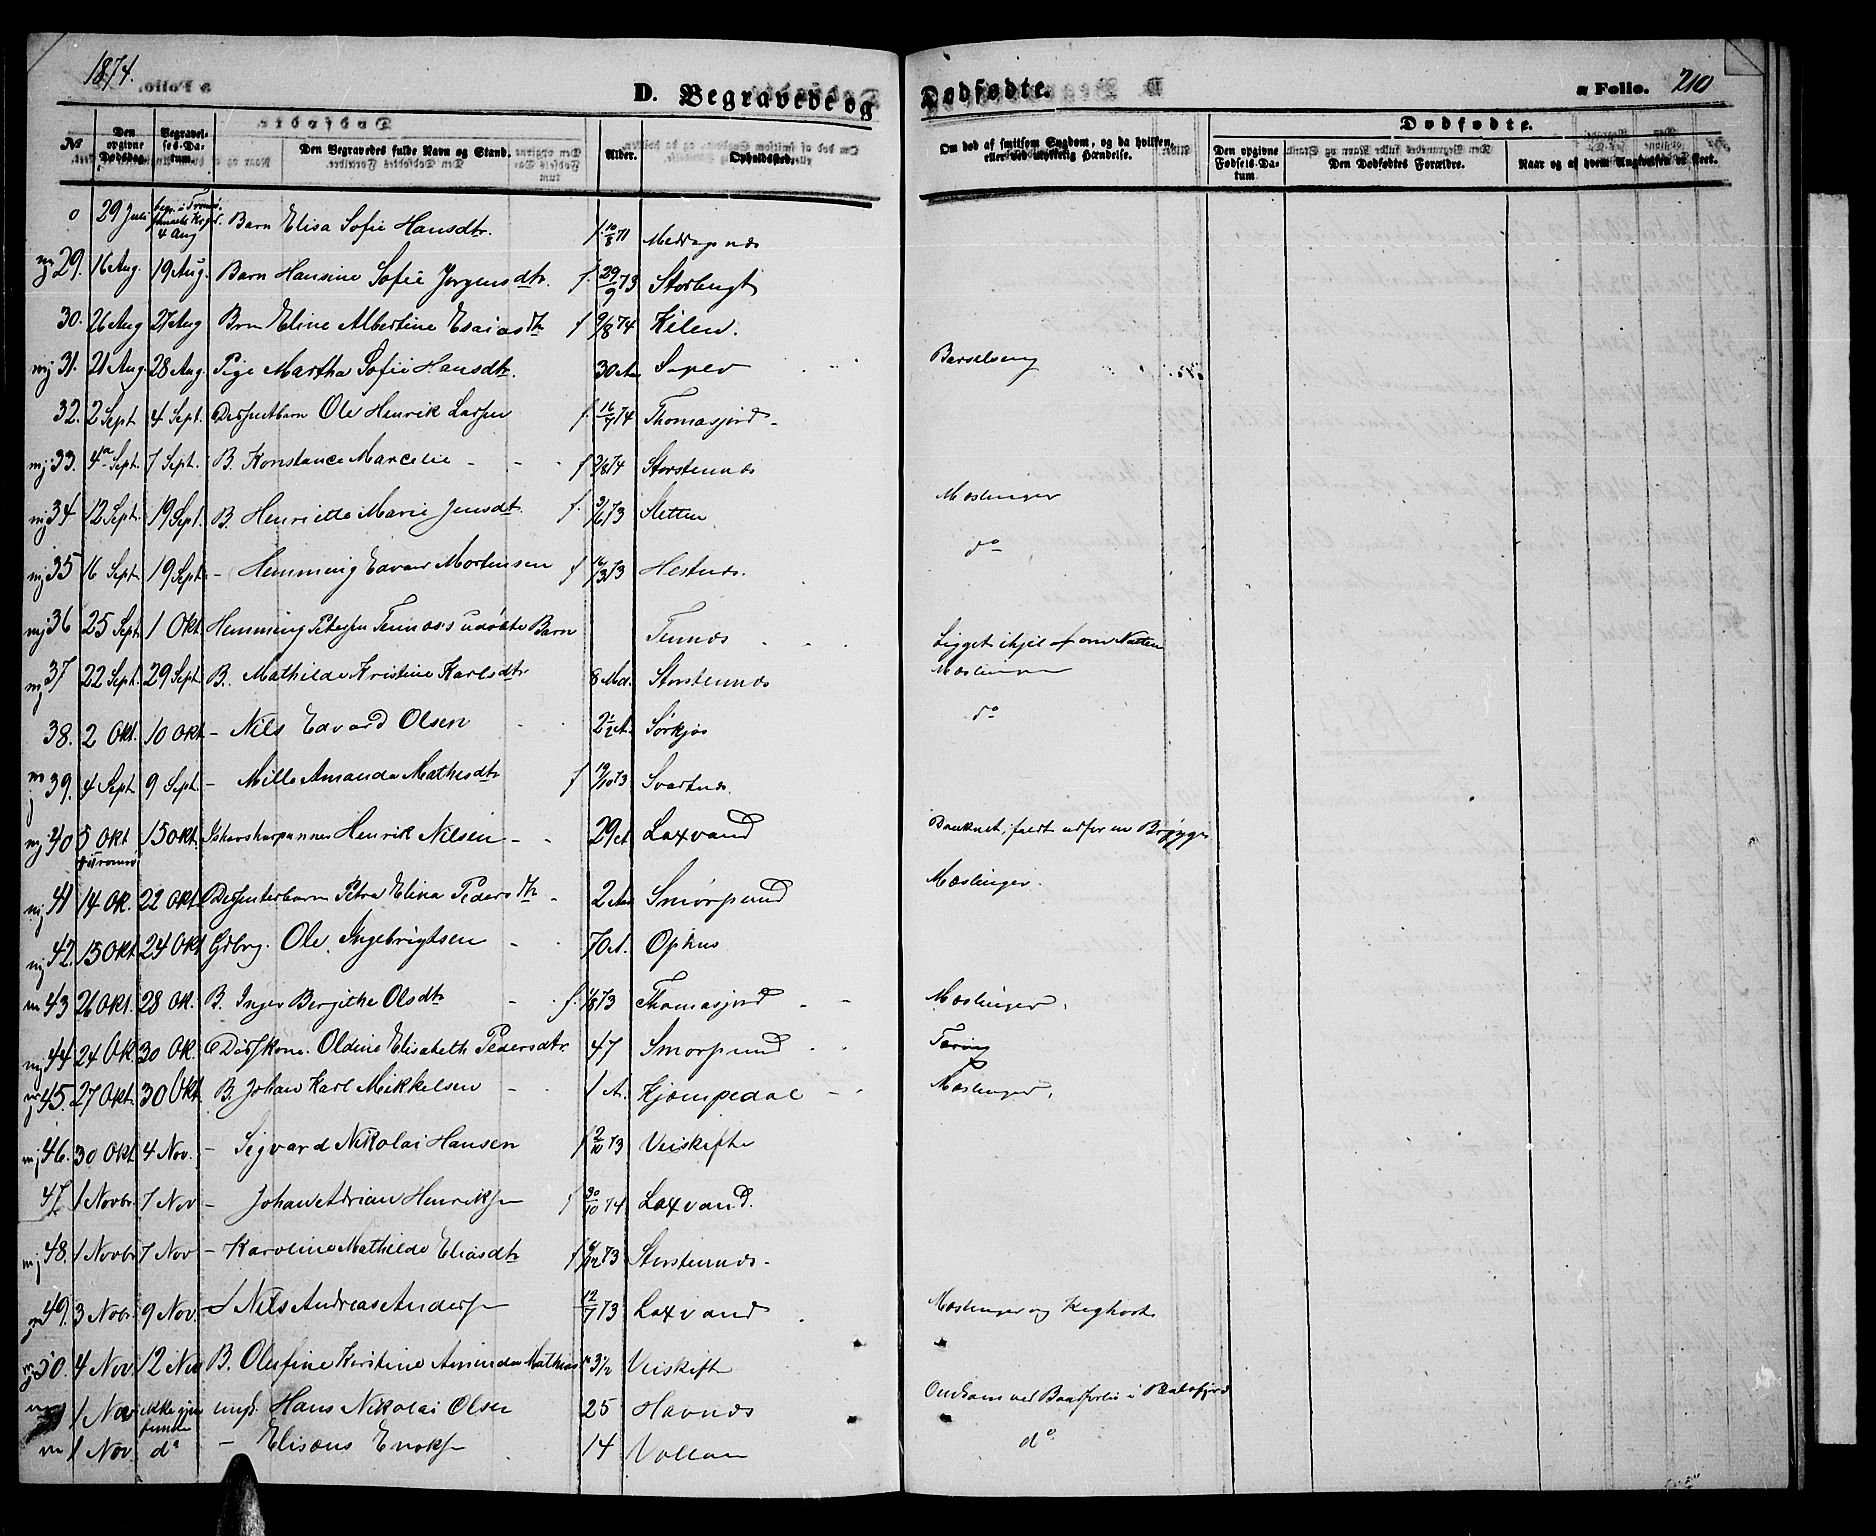 1874.
D. Begravede og
Dødfødte.
a Folio. 210
No
Den opgivne Dødsdag.
Begravelses-Datum.
Den Begravedes fulde Navn og Stand.
Alder.
Opholdssted.
Om død af smitsom Sygdom, og da hvilken, eller ved ulykkelig Hændelse.
Dødfødte.
Den opgivne Fødsels-Datum.
Den Dødfødtes Forældre.
Naar og af hvem Angivelsen er skeet.
0 29 Juli 4 Aug Barn Elisa Sofie Hansdtr. f. 10/8 71
29. 16 Aug. 19 Aug. Barn Hansine Sofie Jørgensdtr. f. 29/9 73 Storbugt
30. 26 Aug 27 Aug Brn Eline Albertine Esaiasdtr f 9/8 74 Kilen.
31. 21 Aug. 28 Aug. Pige Martha Sofie Hansdtr. 30 Barselseng
32. 2 Sept 4 Sept. Dissentbarn Ole Henrik Larsen f. 16/7 74 Thomasjord
33. 4 Sept. 7 Sept. B. Konstance Marcelie f 74 Storstennæs
34 12 Sept. 19 Sept. B. Henriette Marie Jensdtr. f. 73 Sletten Mæslinger
35 16 Sept. 19 Sept. - Hemming Edvard Mortensen f 16/3 73 Hestnæs. do
36 25 Sept 1 Okt Hemming Petersen Tennæs's udøbte Barn Tennæs Ligget ihjel om Natten
37 22 Sept. 29 Sept. B. Mathilde Kristine Karlsdtr 8 Md. Storstennæs Mæslinger
38. 2 Okt. 10 Okt - Nils Edvard Olsen 2 1/2 A. Sørkjos do
39. 4 Sept. 9 Sept. - Mille Amanda Mathisdtr f 19/10 73 Svartnæs.
40 5 Okt Tromsø 15 Okt Henrik Nilsen 29 A Laxvand Druknet, faldt udfor en Brygge
41 14 Ok. 22 Okt Dissenterbarn Petra Elina Pedersdtr 2 Smørpund Mæslinger.
42. 13 Okt 24 Okt Gdbrg. Ole Ingebrigtsen 70 A. Ophus
43 26 Okt. 28 Ok. B. Inger Bergithe Olsdtr f. 73 Thomasjord Mæslinger.
44 24 Ok 30 Ok. Disskone. Oldine Elisabeth Pedersdtr. 47 Smørpund Tæring
45. 27 Okt. 30 Okt. B. Johan Karl Mikkelsen 1 A. Kjempedal Mæslinger.
46. 30 Okt 4 Nov. - Sigvard Nikolai Hansen f 2/10 73 Veiskifte
47. 1 Novbr. 7 Nov - Johan Adrian Henriksen f 30/10 74 Laxvand.
48. 1 Novbr 7 Nov - Karoline Mathilde Eliasdtr f 73 Storstennæs.
49. 3 Novbr. 9 Nov. - Nils Andreas Andersen 12/7 73 Laxvand Mæslinger og Kighoste
50. 4 Nov 12 Nov B. Olufine Kirstine Amanda Mathis 3 1/2 Veiskifte
1 Nov ikke gjenfunden ungk. Hans Nikolai Olsen 25 Havnæs Omkom ved Baadforlis i Balsfjord
1 Nov do - Elisæus Enoksen 14 Vollan do